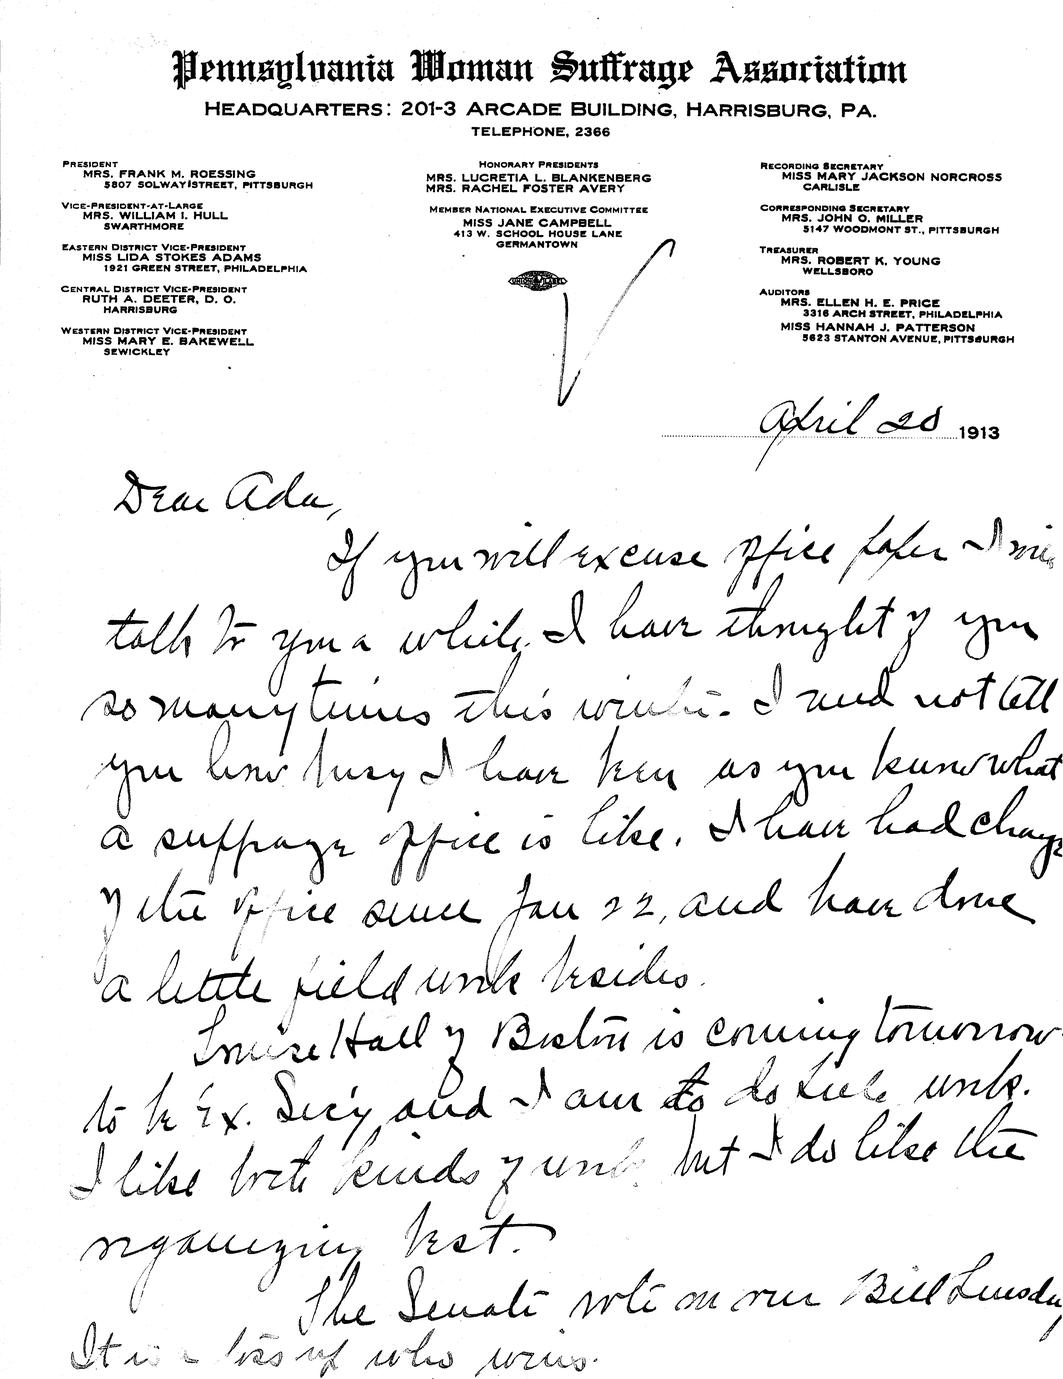 Pennsylvania Woman Suffrage Association
HEADQUARTERS: 201-3 ARCADE BUILDING, HARRISBURG, PA.
TELEPHONE, 2366
PRESIDENT
MRS. FRANK M. ROESSING
5807 SOLWAY STREET, PITTSBURGH
VICE-PRESIDENT-AT-LARGE
MRS. WILLIAM I. HULL
SWARTHMORE
EASTERN DISTRICT VICE-PRESIDENT
MISS LIDA STOKES ADAMS
1921 GREEN STREET, PHILADELPHIA
CENTRAL DISTRICT VICE-PRESIDENT
RUTH A. DEETER, D. O.
HARRISBURG
WESTERN DISTRICT VICE-PRESIDENT
MISS MARY E. BAKEWELL
SEWICKLEY
HONORARY PRESIDENTS
MRS. LUCRETIA L. BLANKENBERG
MRS. RACHEL FOSTER AVERY
MEMBER NATIONAL EXECUTIVE COMMITTEE
MISS JANE CAMPBELL
413 W. SCHOOL HOUSE LANE
GERMANTOWN
UNION LABEL
RECORDING SECRETARY
MISS MARY JACKSON NORCROSS
CARLISLE
CORRESPONDING SECRETARY
MRS. JOHN O. MILLER
5147 WOODMONT ST., PITTSBURGH
TREASURER
MRS. ROBERT K. YOUNG
WELLSBORO
AUDITORS
MRS. ELLEN H. E. PRICE
3316 ARCH STREET, PHILADELPHIA
MISS HANNAH J. PATTERSON
5623 STANTON AVENUE, PITTSBURGH
April 20 1913
Dear Ada,
If you will excuse office paper I will
talk to you a while. I have thought of you
so many times this winter. I need not tell
you how busy I have been as you know what
a suffrage office is like. I have had charge
of the office since Jan 22, and have done
a little field work besides.
Louise Hall of Boston is coming tomorrow
to be Ex. Sec'y and I am to do field work.
I like both kinds of work but I do like the
organizing best.
The Senate vote on our Bill Tuesday
It is a toss up who wins.